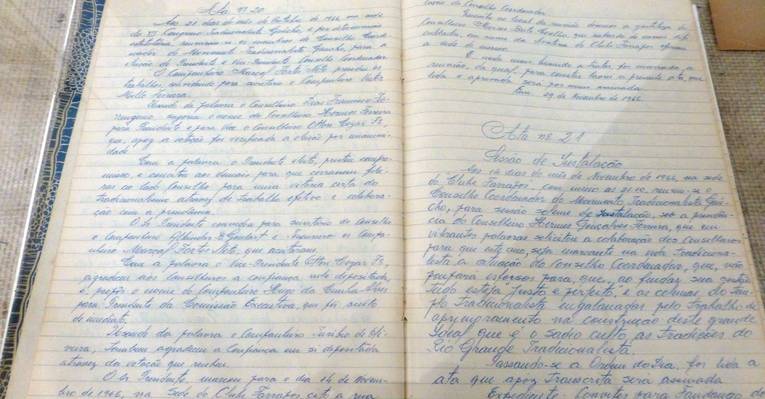 Ata nº 20
Aos 21 dias do mês de Outubro de 1966, na sede
do XI Congresso Tradicionalista Gaúcho, e por determinação
estatutária, reuniram-se os membros do Conselho Coorde-
nador do Movimento Tradicionalista Gaúcho, para a
eleição do Presidente e Vice Presidente Conselho Coordenador.
O Companheiro Marçal Forte Neto presidiu os
trabalhos, convidando para secretário o Companheiro
Mello Ferreira.
Usando da palavra o Conselheiro Francisco
sugeriu o nome do Conselheiro Hermes Ferreira
para Presidente e para Vice o Conselheiro Othon Cezar Fº,
que, após a votação foi verificada a eleição por unanimi-
dade.
Com a palavra, o Presidente eleito, prestou compro-
misso, e concitou aos demais para que cerrassem filei-
ras ao lado Conselho para uma vitória certa do
Tradicionalismo através do Trabalho efetivo e colabora-
ção com a presidência.
O Sr. Presidente convidou para secretário do Conselho
o Companheiro e Tesoureiro o Compa-
nheiro Marçal Forte Neto, que aceitaram.
Com a palavra o Vice Presidente Othon Cezar Fº,
agradeceu aos Conselheiros a confiança nele depositada,
e propôs o nome do Companheiro Hugo da Cunha Alves
para Presidente da Comissão Executiva, que foi aceito
de imediato.
Usando da palavra o Companheiro de Oli-
veira, Também agradeceu a Confiança em si depositada
através da votação que recebeu.
O Sr. Presidente, marcou para o dia 14 de Novem-
bro de 1966, na Sede do Clube Farrapos cita a rua
do Conselho Coordenador.
Presente no local da reunião
Conselheiro
a sede do mesmo.
E nada mais havendo a tratar foi encerrada a
reunião, da qual, para constar lavrei a presente ata que
lida e aprovada. Será por mim assinada
de 1966.
Ata nº 21
Sessão de Instalação
Aos 14 dias do mês de Novembro de 1966, na sede
do Clube Farrapos, com início as 21,10, reuniu-se o
Conselho Coordenador do Movimento Tradicionalista Gaú-
cho, para sessão solene de Instalação, sob a presidên-
cia do Conselheiro Hermes Gonçalves Ferreira, que em
vibrantes palavras solicitou a colaboração dos Conselheiros
para que este ano, seja marcante na vida Tradiciona-
lista a atuação do Conselho Coordenador, que, não
poupará esforços para, que, ao findar sua gestão
tudo esteja justo e perfeito, e as colunas do tem-
plo Tradicionalista engalanadas pelo Trabalho de
aprimoramento na construção deste grande
Ideal que é o sadio culto as tradições do
Rio Grande Tradicionalista.
Passando-se a Ordem do Dia, foi lida a
ata que após Transcrita será assinada
Expediente - Convites para Fandango do